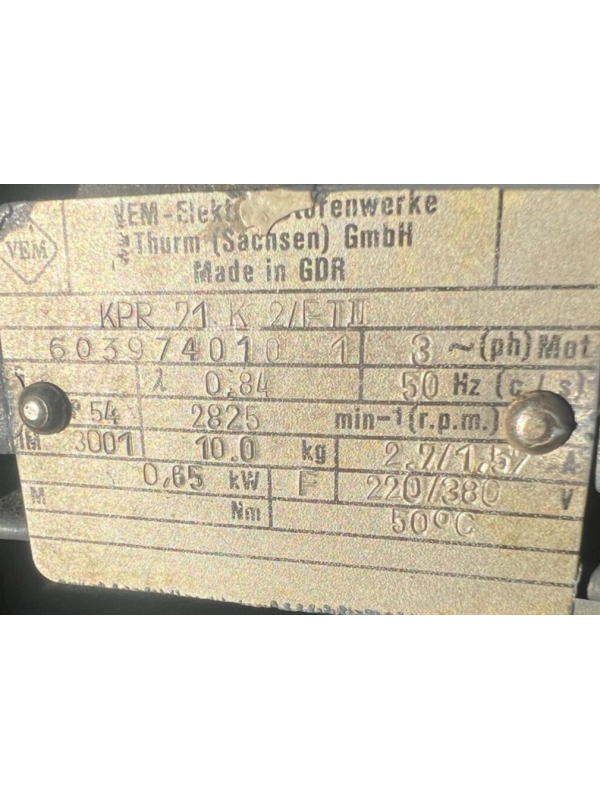 VEM
VEM-Elekt torenwerke
Thurm (Sachsen) GmbH
Made in GDR
KPR 71 K 2/F T II
603974010 1 3 ~(ph) Mot
λ 0,84 50 Hz (c/s)
54 2825 min-1 (r.p.m.)
IM 3001 10.0 kg 2.7/1.57 A
0,65 kW F 220/380 V
M Nm 50°C